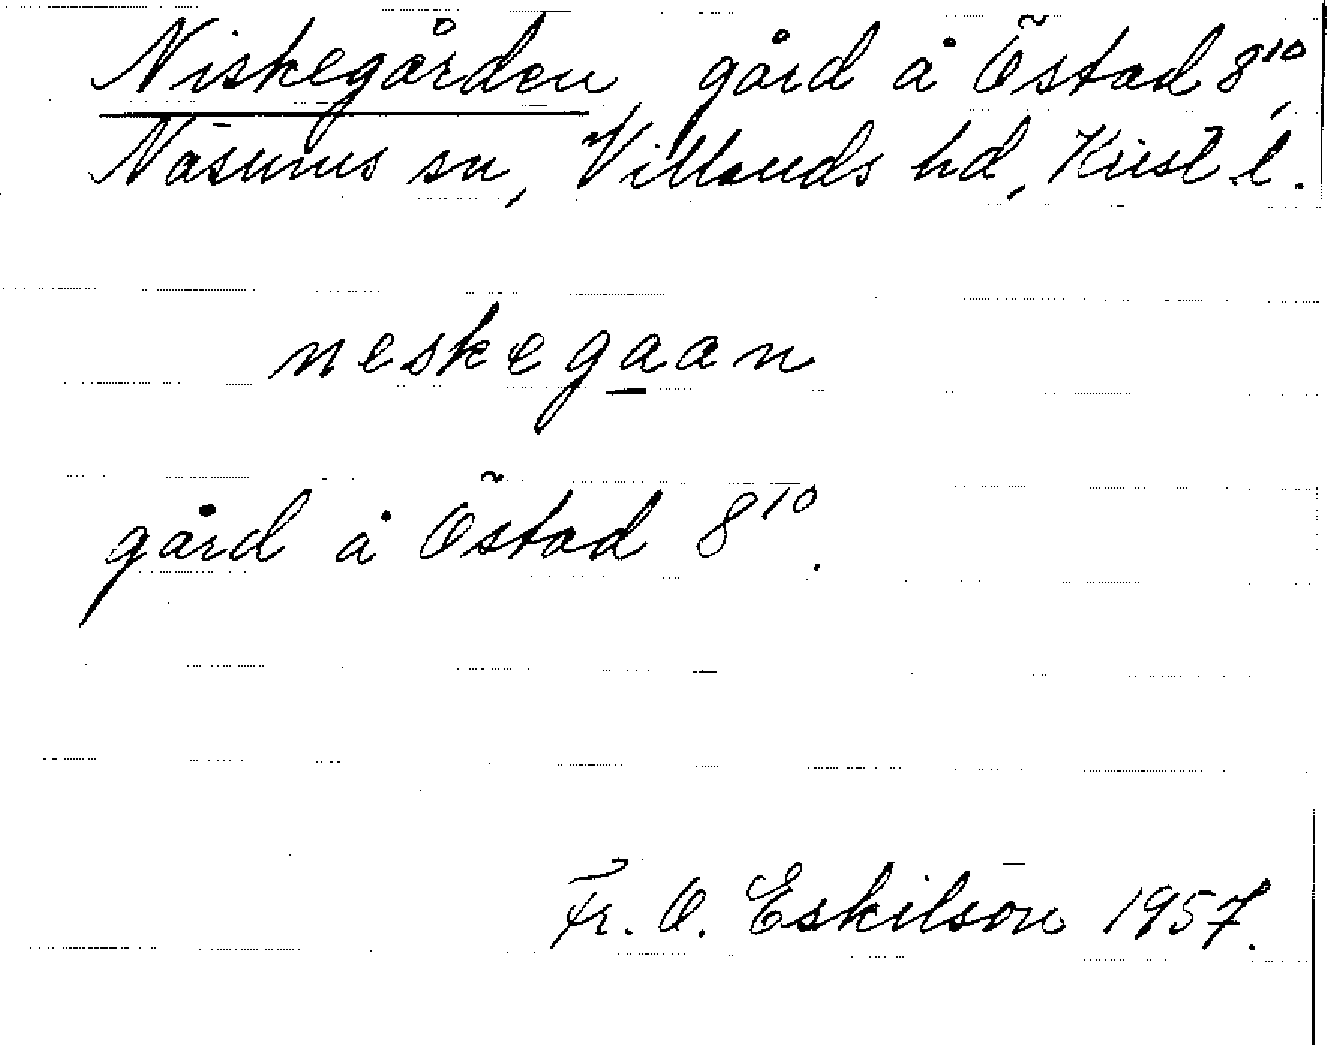 Niskegården, gård å Östad 8¹⁰,
Näsums sn, Villands hd, Krist. l.
neskegaan
gård å Östad 8¹⁰.
Fr. O. Eskilson 1957.